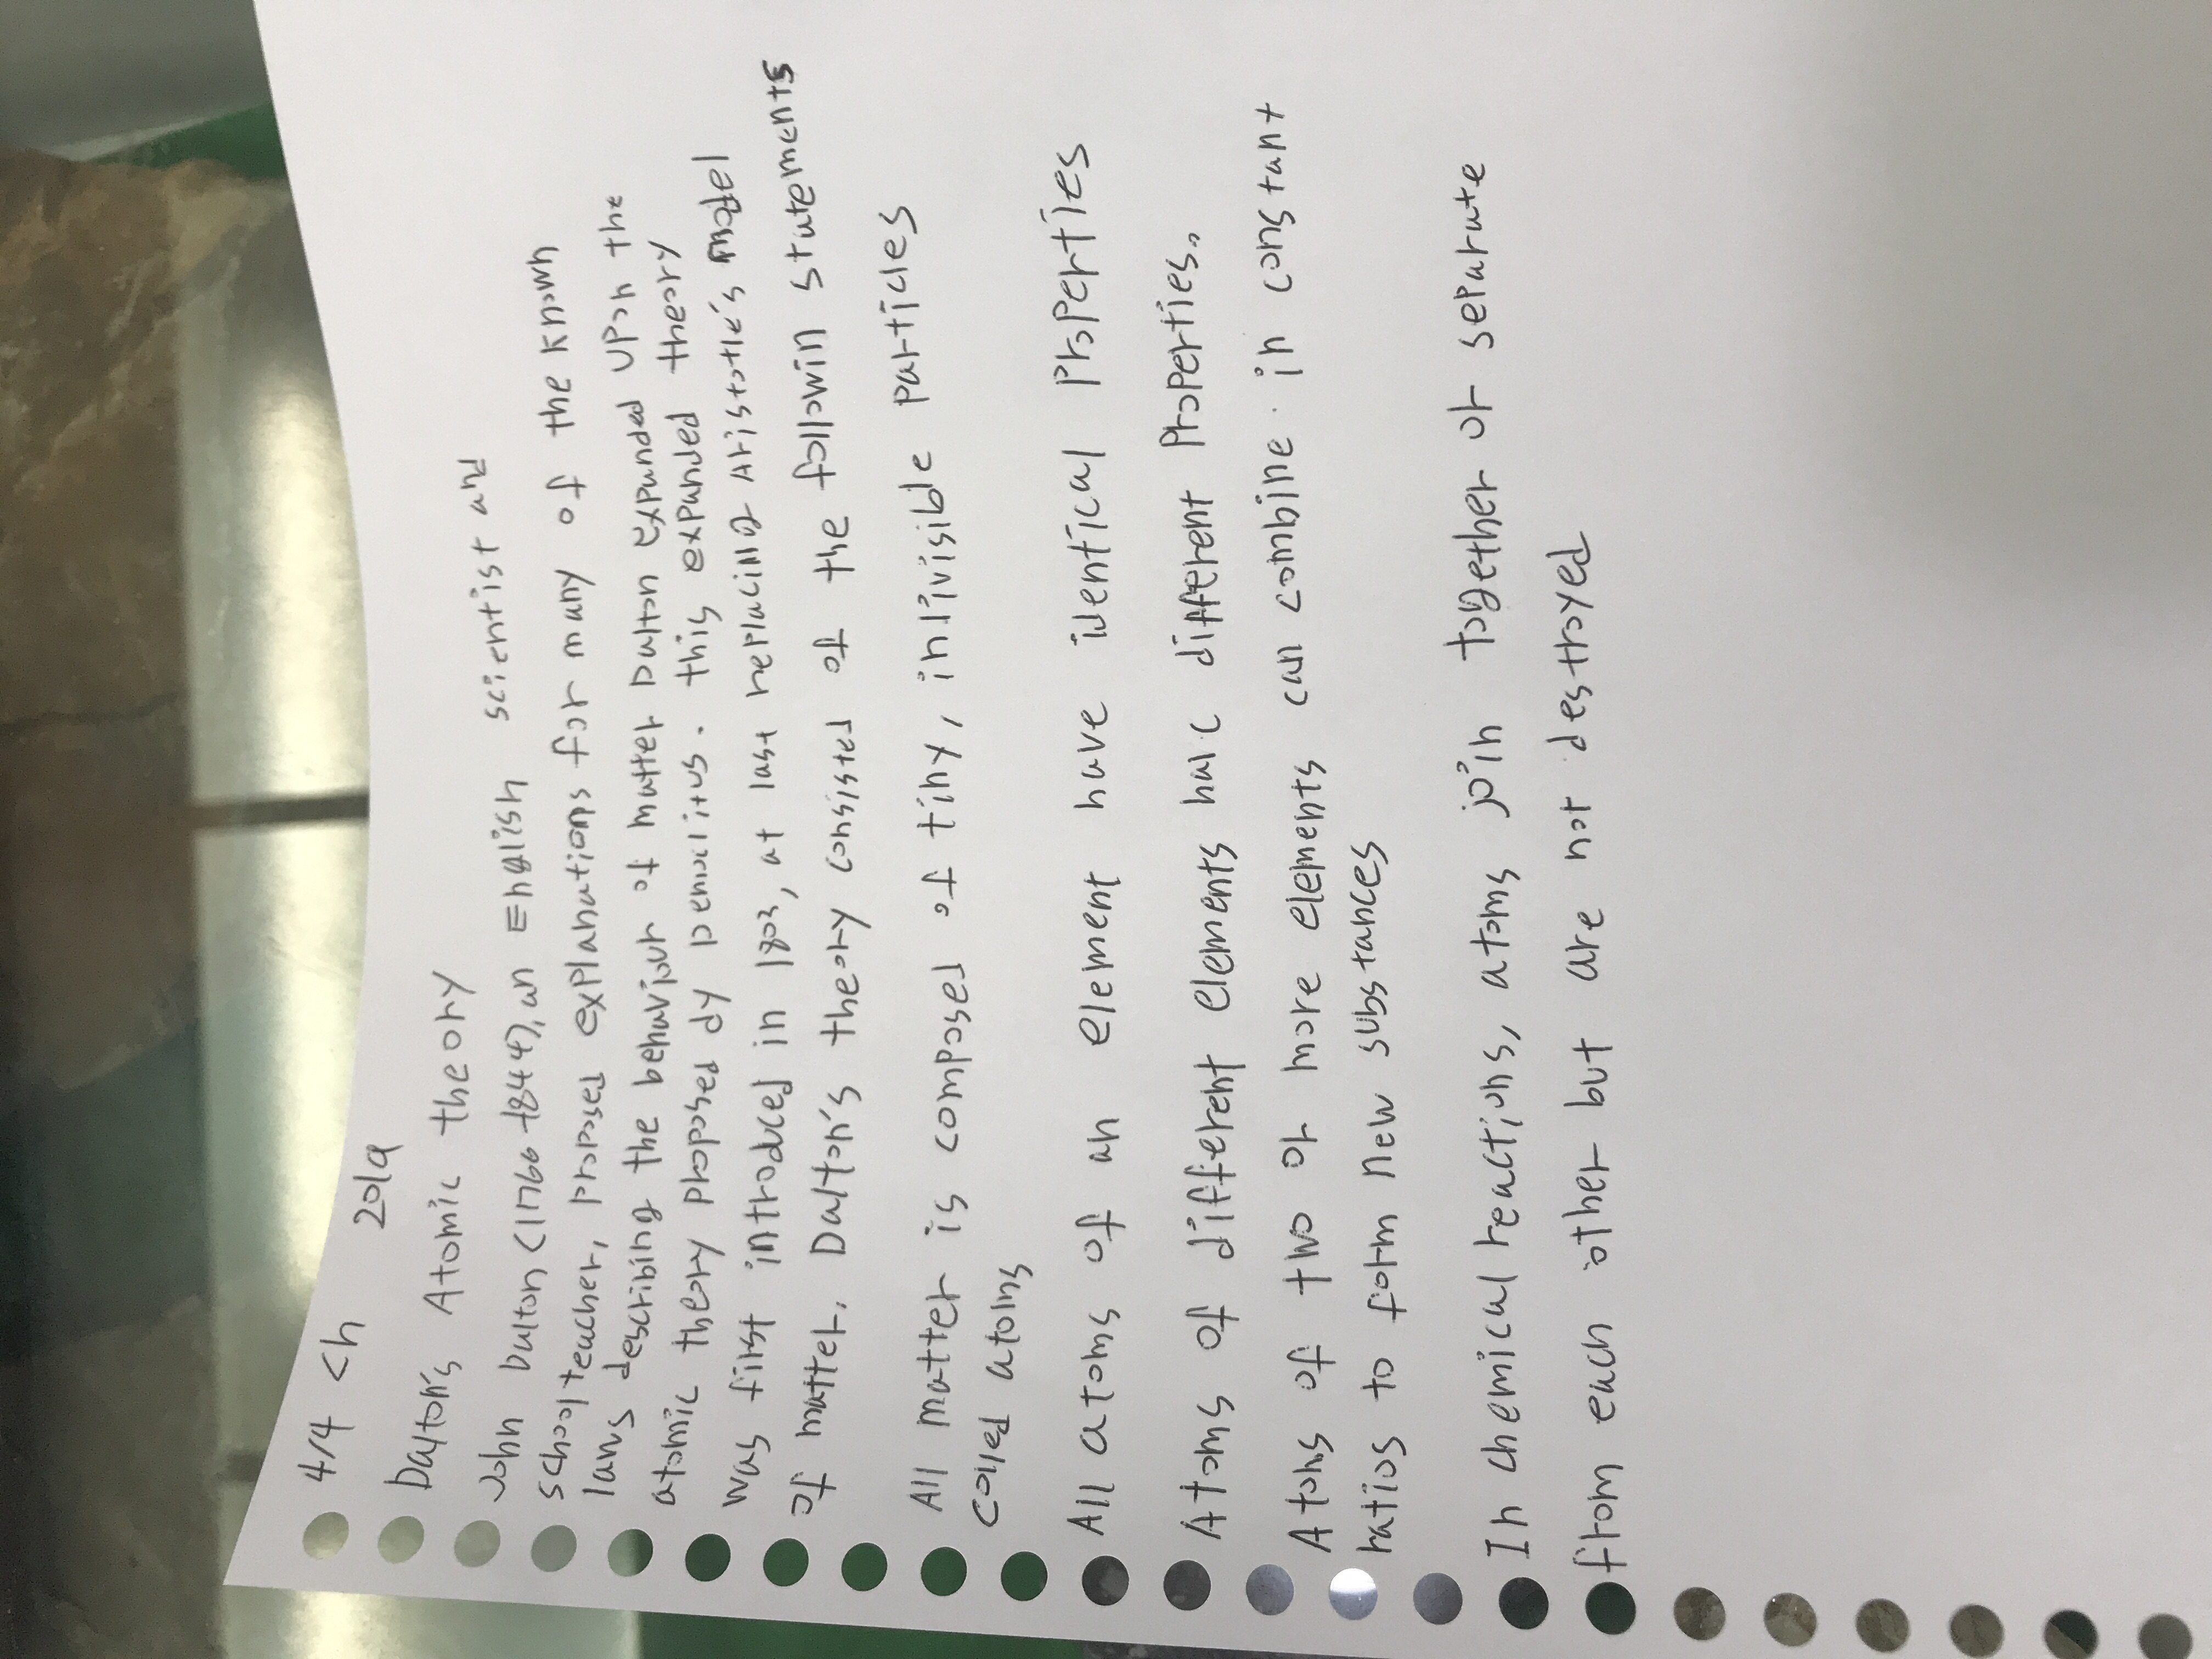 4/4 ch
2019
Dalton's Atomic theory
John Dalton (1766-1844), an English scientist and
school teacher, proposed explanations for many of the known
laws describing the behaviour of matter Dalton expanded upon the
atomic theory proposed dy Democritus. this expanded theory
was first introduced in 1803, at last replacing Aristotle's model
of matter. Dalton's theory consisted of the followin statements
All matter is composed of tiny, indivisible particles
called atoms
All atoms of an element have identical properties
Atoms of different elements have different properties.
Atoms of two or more elements can combine in constant
ratios to form new substances
In chemical reactions, atoms join together or separate
from each other but are not destroyed